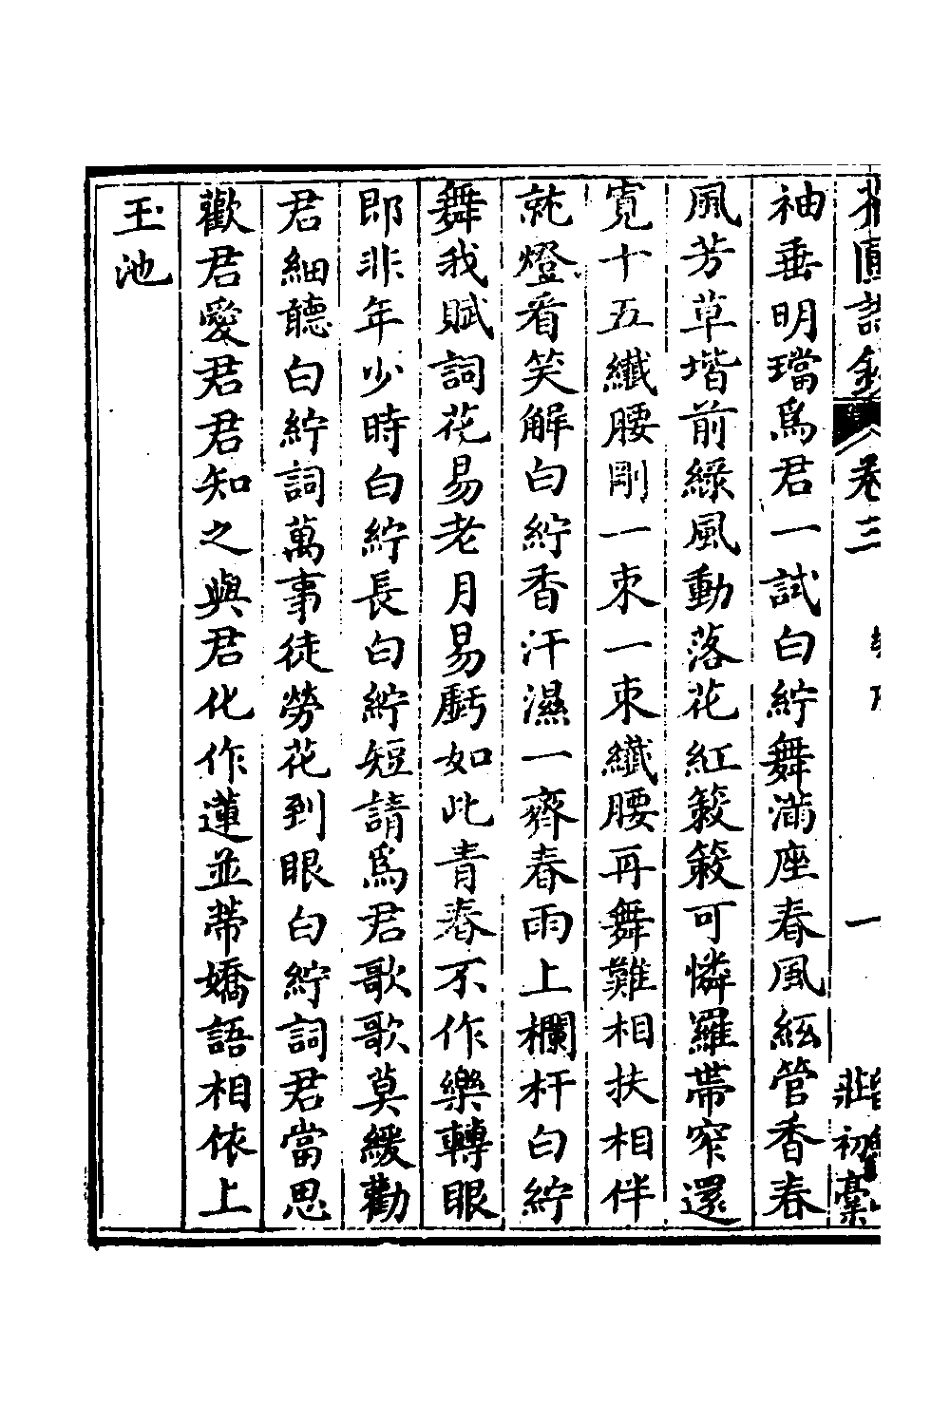 卷三
一
袖垂明璫爲君一試白紵舞滿座春風絃管香春
風芳草堦前綠風動落花紅簌簌可憐羅帶窄還
寬十五纖腰剛一束一束纖腰再舞難相扶相伴
就燈看笑解白紵香汗濕一齊春雨上欄杆白紵
舞我賦詞花易老月易虧如此青春不作樂轉眼
即非年少時白紵長白紵短請爲君歌歌莫緩勸
君細聽白紵詞萬事徒勞花到眼白紵詞君當思
歡君愛君君知之與君化作蓮並蔕嬌語相依上
玉池